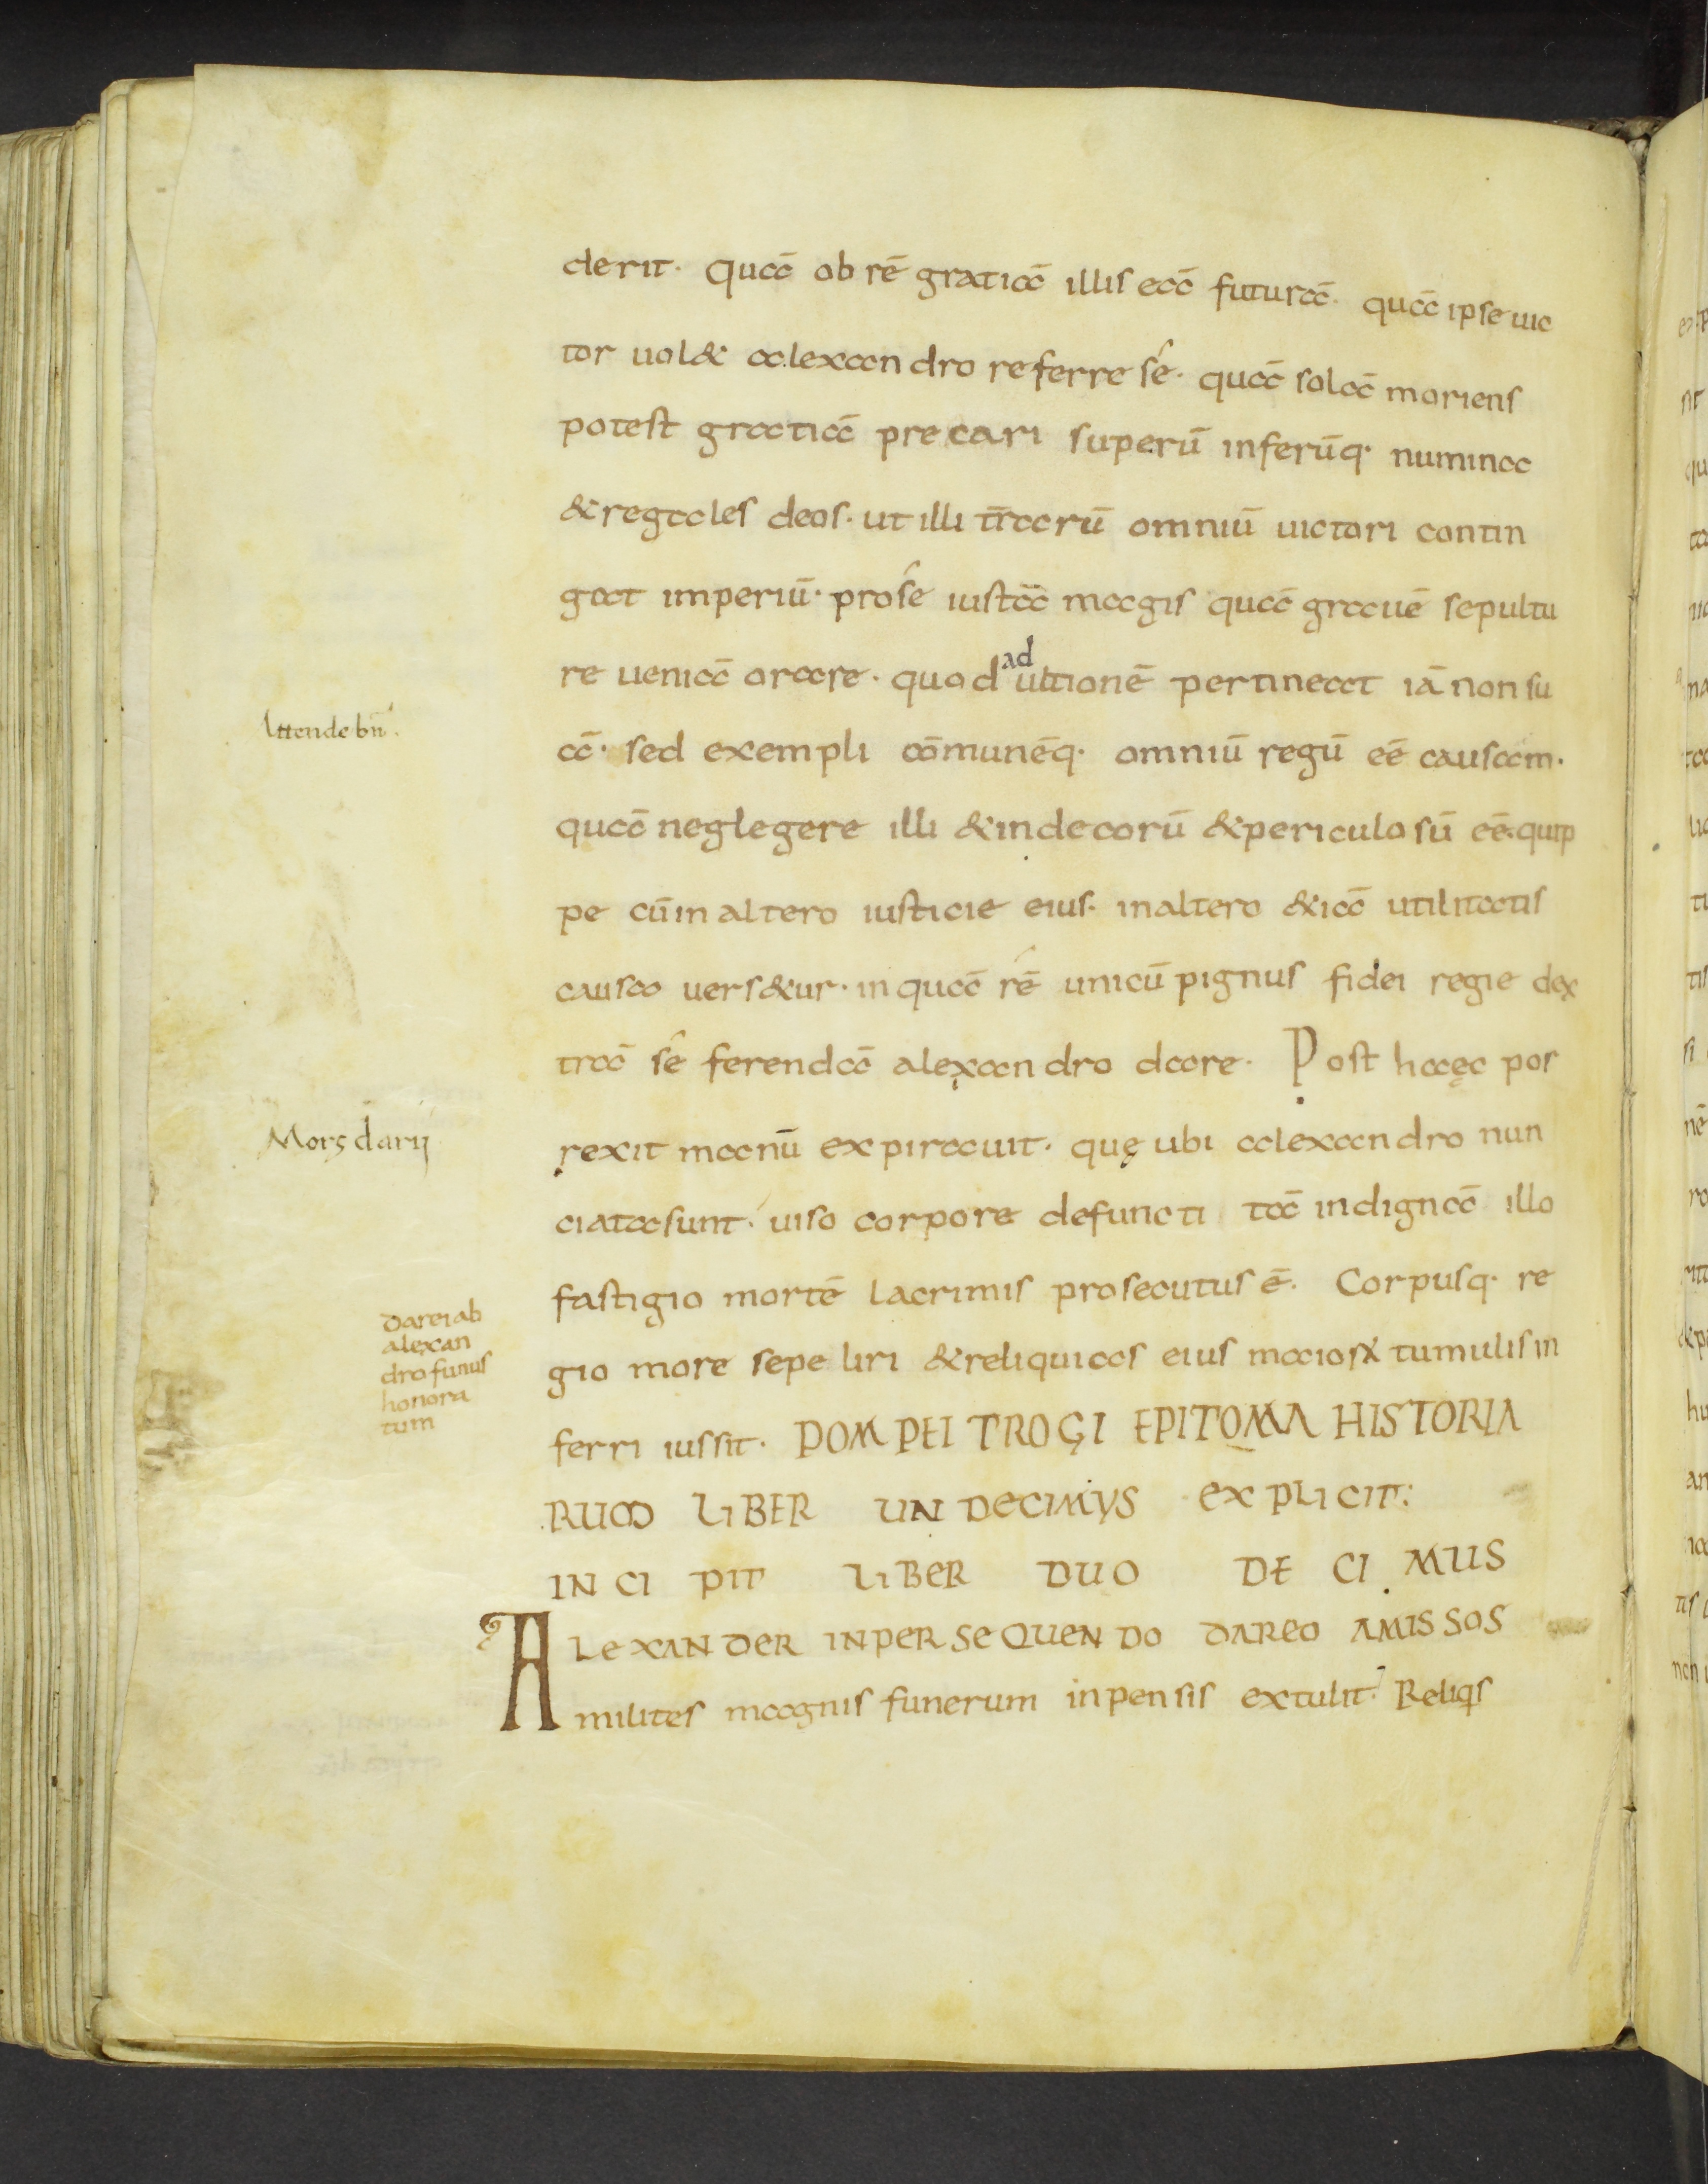 derit. Quā ob rē gratiā illis eā futurā. quā ipse uic
tor uol& alexandro referre sé. quā solā moriens
potest gratiā precari superū inferūq· numina
& regales deos. ut illi tr̄arū omniū uictori contin
gat imperiū. pro sé iustā magis quā grauē sepultu
re ueniā orare. quod ad ultionē pertineat iā non su
Attende bn̄.
ā. sed exempli cōmunēq· omniū regū eē causam.
quā neglegere illi & indecorū & periculosū eē. quip
pe cū in altero iusticie eius. in altero &iā utilitatis
causa uers&ur. in quā rē unicū pignus fidei regie dex
trā sé ferendā alexandro dare. Post haęc por
Mors darij
rexit manū expirauit. quę ubi alexandro nun
ciata sunt. uiso corpore defuncti tā indignā illo
fastigio mortē lacrimis prosecutus ē. Corpusq· re
Darei ab
alexan
dro funus
honora
tum
gio more sepeliri & reliquias eius maiorꝝ tumulis in
ferri iussit. POMPEI TROGI EPITOMA HISTORIA
RUM LIBER UNDECIMVS EXPLICIT:
INCIPIT LIBER DUODECIMUS
ALEXANDER INPERSEQUENDO DAREO AMISSOS
milites magnis funerum inpensis extulit. Reliqs